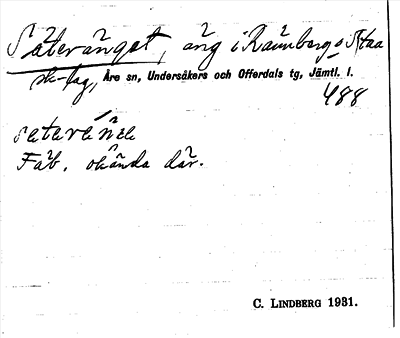 Säterängat, äng i Raunbergs Staa
sk-lag, Åre sn, Undersåkers och Offerdals tg, Jämtl. l.
488
Fäb. okända där.
C. LINDBERG 1931.